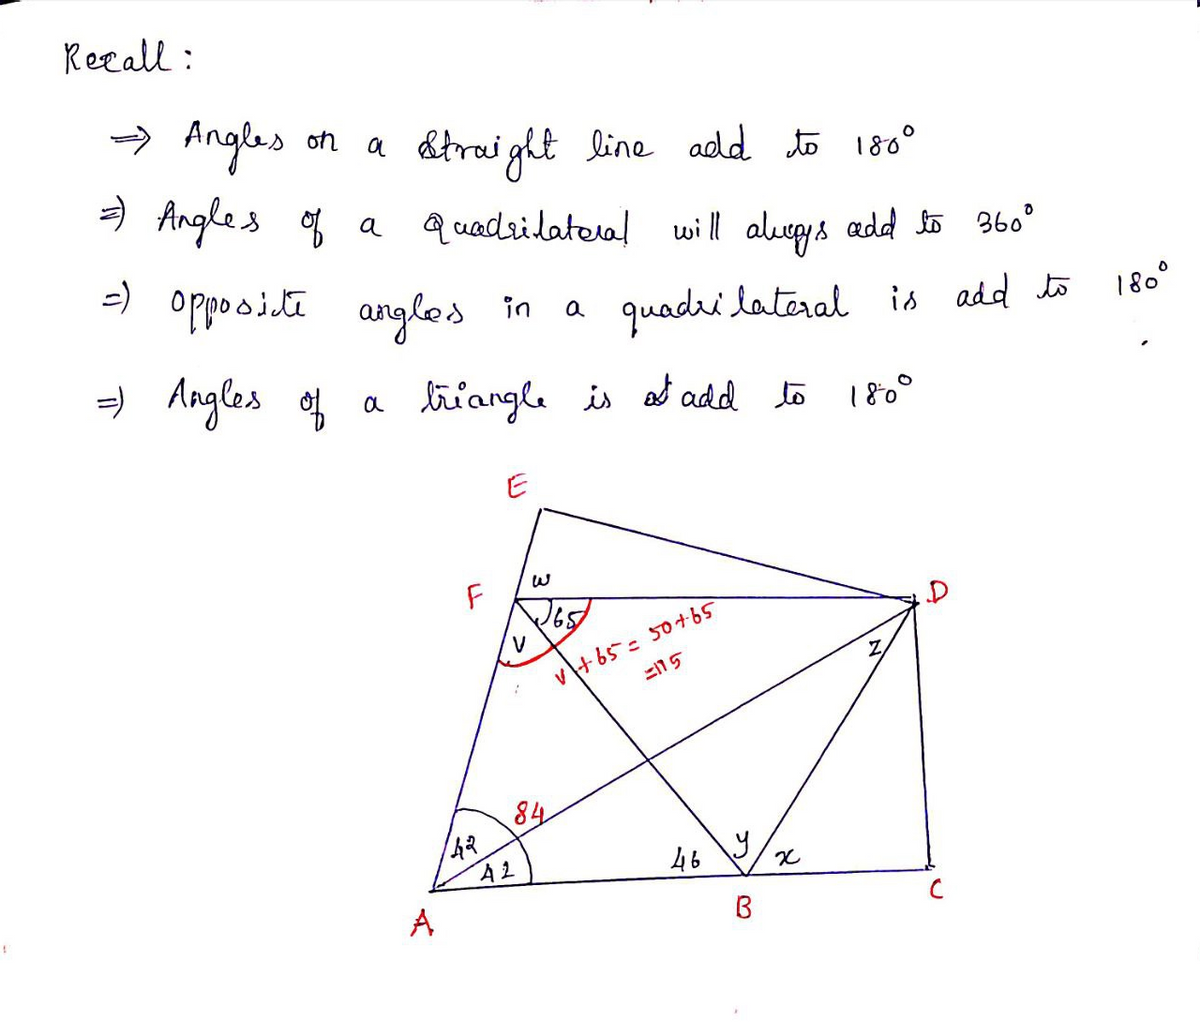 Recall :
⇒ Angles on a straight line add to 180°
⇒ Angles of a Quadrilateral will always add to 360°
⇒ opposite angles in a quadrilateral is add to 180°
⇒ Angles of a triangle is add to 180°
E
w
F
D
65
v
v + 65 = 50 + 65
= 115
z
84
42
42
46
y
x
A
B
C